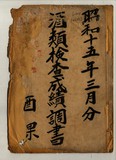 昭和十五年三月分
酒類検査成績調書
酉果